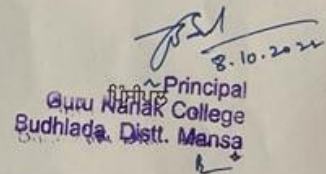 8.10.2022
ਪ੍ਰਿੰਸੀਪਲ
Principal
Guru Nanak College
Budhlada, Distt. Mansa